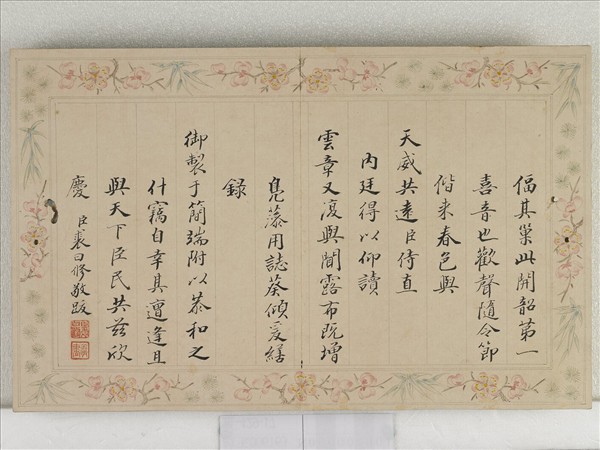 偪其巢此開韶第一
喜音也歡聲隨令節
偕來春色與
天威共遠臣侍直
內廷得以仰讀
雲章又復與聞露布既增
鳧藻用誌葵傾爰繕
録
御製于簡端附以恭和之
什竊自幸其遭逢且
與天下臣民共茲欣
慶 臣裘曰修敬跋